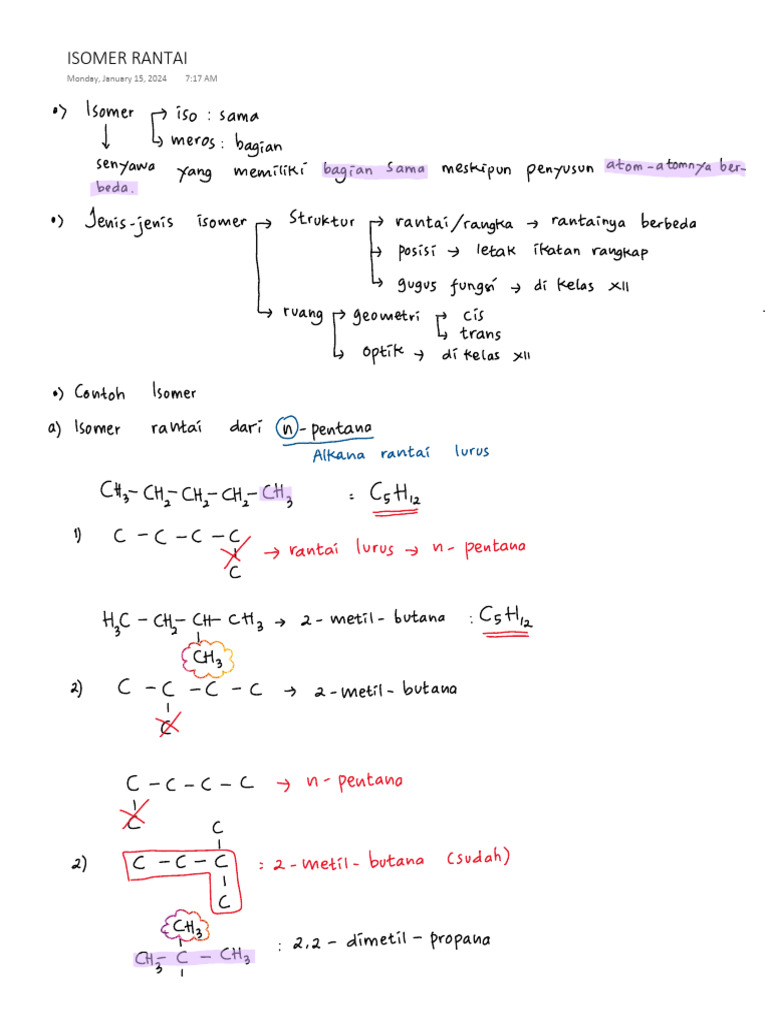 ISOMER RANTAI
Monday, January 15, 2024 7:17 AM
•) Isomer → iso : sama
→ meros : bagian
↓
senyawa yang memiliki bagian sama meskipun penyusun atom-atomnya ber-
beda.
•) Jenis-jenis isomer → Struktur → rantai/rangka → rantainya berbeda
→ posisi → letak ikatan rangkap
→ gugus fungsi → di kelas XII
→ ruang → geometri → cis
→ trans
→ optik → di kelas XII
•) Contoh Isomer
a) Isomer rantai dari n-pentana
Alkana rantai lurus
CH₃–CH₂–CH₂–CH₂–CH₃ : C₅H₁₂
1) C – C – C – C
→ rantai lurus → n-pentana
C
H₃C – CH₂ – CH – CH₃ → 2-metil-butana : C₅H₁₂
CH₃
2) C – C – C – C → 2-metil-butana
C
C – C – C – C → n-pentana
C
C
2) C – C – C : 2-metil-butana (sudah)
C
CH₃
CH₃ – C – CH₃ : 2,2-dimetil-propana